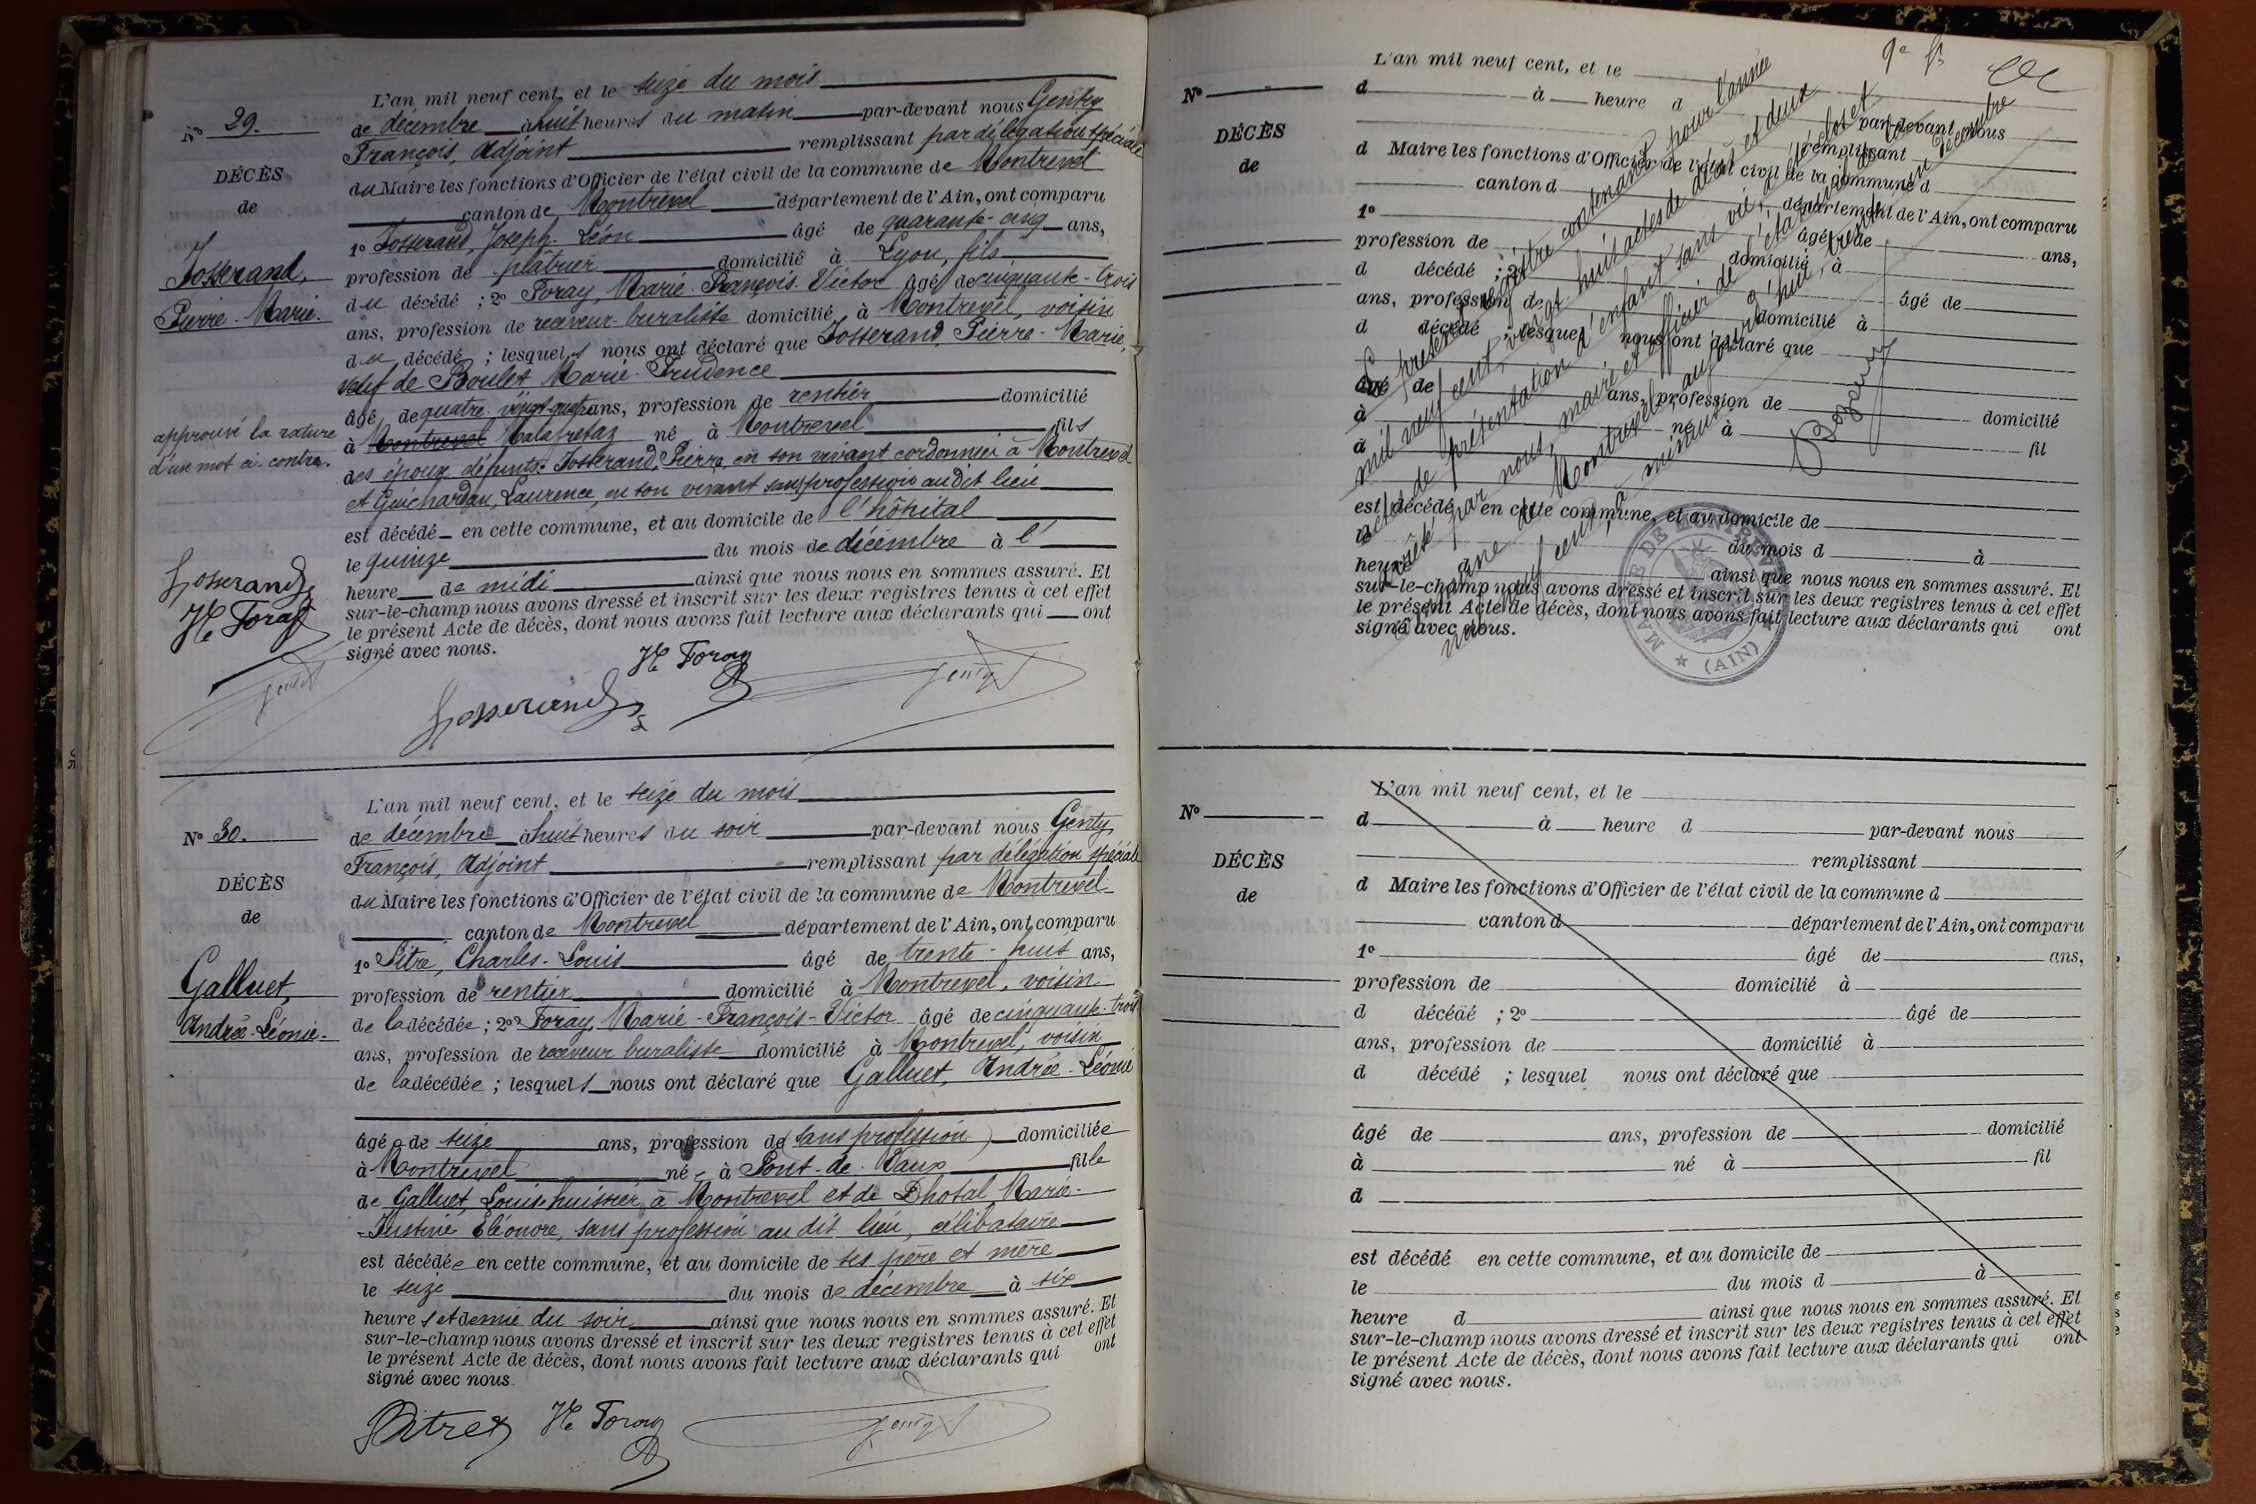 L'an mil neuf cent, et le seize du mois
No 29.
de décembre à huit heures du matin par-devant nous Genty
François, Adjoint remplissant par délégation spéciale
DÉCÈS
du Maire les fonctions d'Officier de l'état civil de la commune de Montrevel
de
canton de Montrevel département de l'Ain, ont comparu
1o Josserand, Joseph-Léon âgé de quarante-cinq ans,
Josserand,
profession de plâtrier domicilié à Lyon, fils
Pierre-Marie.
du décédé ; 2o Foray, Marie-François-Victor âgé de cinquante-trois
ans, profession de receveur-buraliste domicilié à Montrevel, voisin
du décédé ; lesquels nous ont déclaré que Josserand Pierre-Marie,
veuf de Boulet Marie-Prudence
âgé de quatre-vingt-quatre ans, profession de rentier domicilié
approuvé la rature
à Montrevel Malafretaz né à Montrevel fils
d'un mot ci-contre.
des époux défunts: Josserand, Pierre en son vivant cordonnier à Montrevel
et Guichardan, Laurence, en son vivant sans profession audit lieu
est décédé en cette commune, et au domicile de l'hôpital
le quinze du mois de décembre à l'
heure de midi ainsi que nous nous en sommes assuré. Et
sur-le-champ nous avons dressé et inscrit sur les deux registres tenus à cet effet
le présent Acte de décès, dont nous avons fait lecture aux déclarants qui ont
signé avec nous.
Josserand
Foray
Genty
Foray
Josserand
Genty
L'an mil neuf cent, et le seize du mois
No 30.
de décembre à huit heures du soir par-devant nous Genty
François, Adjoint remplissant par délégation spéciale
DÉCÈS
du Maire les fonctions d'Officier de l'état civil de la commune de Montrevel
de
canton de Montrevel département de l'Ain, ont comparu
1o Pitre, Charles-Louis âgé de trente-huit ans,
Galluet,
profession de rentier domicilié à Montrevel, voisin
Andrée-Léonie.
de la décédée ; 2o Foray Marie-François-Victor âgé de cinquante-trois
ans, profession de receveur buraliste domicilié à Montrevel, voisin
de la décédée ; lesquels nous ont déclaré que Galluet, Andrée-Léonie
âgée de seize ans, profession de (sans profession) domiciliée
à Montrevel née à Pont-de-Vaux fille
de Galluet, Louis huissier à Montrevel et de Dhotal Marie-
-Justine Eléonore, sans profession au dit lieu, célibataire
est décédée en cette commune, et au domicile de ses père et mère
le seize du mois de décembre à six
heures et demie du soir ainsi que nous nous en sommes assuré. Et
sur-le-champ nous avons dressé et inscrit sur les deux registres tenus à cet effet
le présent Acte de décès, dont nous avons fait lecture aux déclarants qui ont
signé avec nous.
Pitre
Foray
Genty
L'an mil neuf cent, et le
No
d à heure d par-devant nous
DÉCÈS
remplissant
de
d Maire les fonctions d'Officier de l'état civil de la commune d
canton d département de l'Ain, ont comparu
1o âgé de ans,
profession de domicilié à
d décédé ; 2o âgé de
ans, profession de domicilié à
d décédé ; lesquel nous ont déclaré que
âgé de ans, profession de domicilié
à né à fil
d
est décédé en cette commune, et au domicile de
le du mois d à
heure d ainsi que nous nous en sommes assuré. Et
sur-le-champ nous avons dressé et inscrit sur les deux registres tenus à cet effet
le présent Acte de décès, dont nous avons fait lecture aux déclarants qui ont
signé avec nous.
Le présent registre contenant pour l'année
mil neuf cent, vingt-huit actes de décès et deux
actes de présentation d'enfant sans vie, a été clos et
arrêté par nous, maire et officier de l'état civil de la
commune de Montrevel, aujourd'hui, trente-un décembre
mil neuf cent, à minuit.
MAIRIE DE MONTREVEL
(AIN)
L'an mil neuf cent, et le
No
d à heure d par-devant nous
DÉCÈS
remplissant
de
d Maire les fonctions d'Officier de l'état civil de la commune d
canton d département de l'Ain, ont comparu
1o âgé de ans,
profession de domicilié à
d décédé ; 2o âgé de
ans, profession de domicilié à
d décédé ; lesquel nous ont déclaré que
âgé de ans, profession de domicilié
à né à fil
d
est décédé en cette commune, et au domicile de
le du mois d à
heure d ainsi que nous nous en sommes assuré. Et
sur-le-champ nous avons dressé et inscrit sur les deux registres tenus à cet effet
le présent Acte de décès, dont nous avons fait lecture aux déclarants qui ont
signé avec nous.